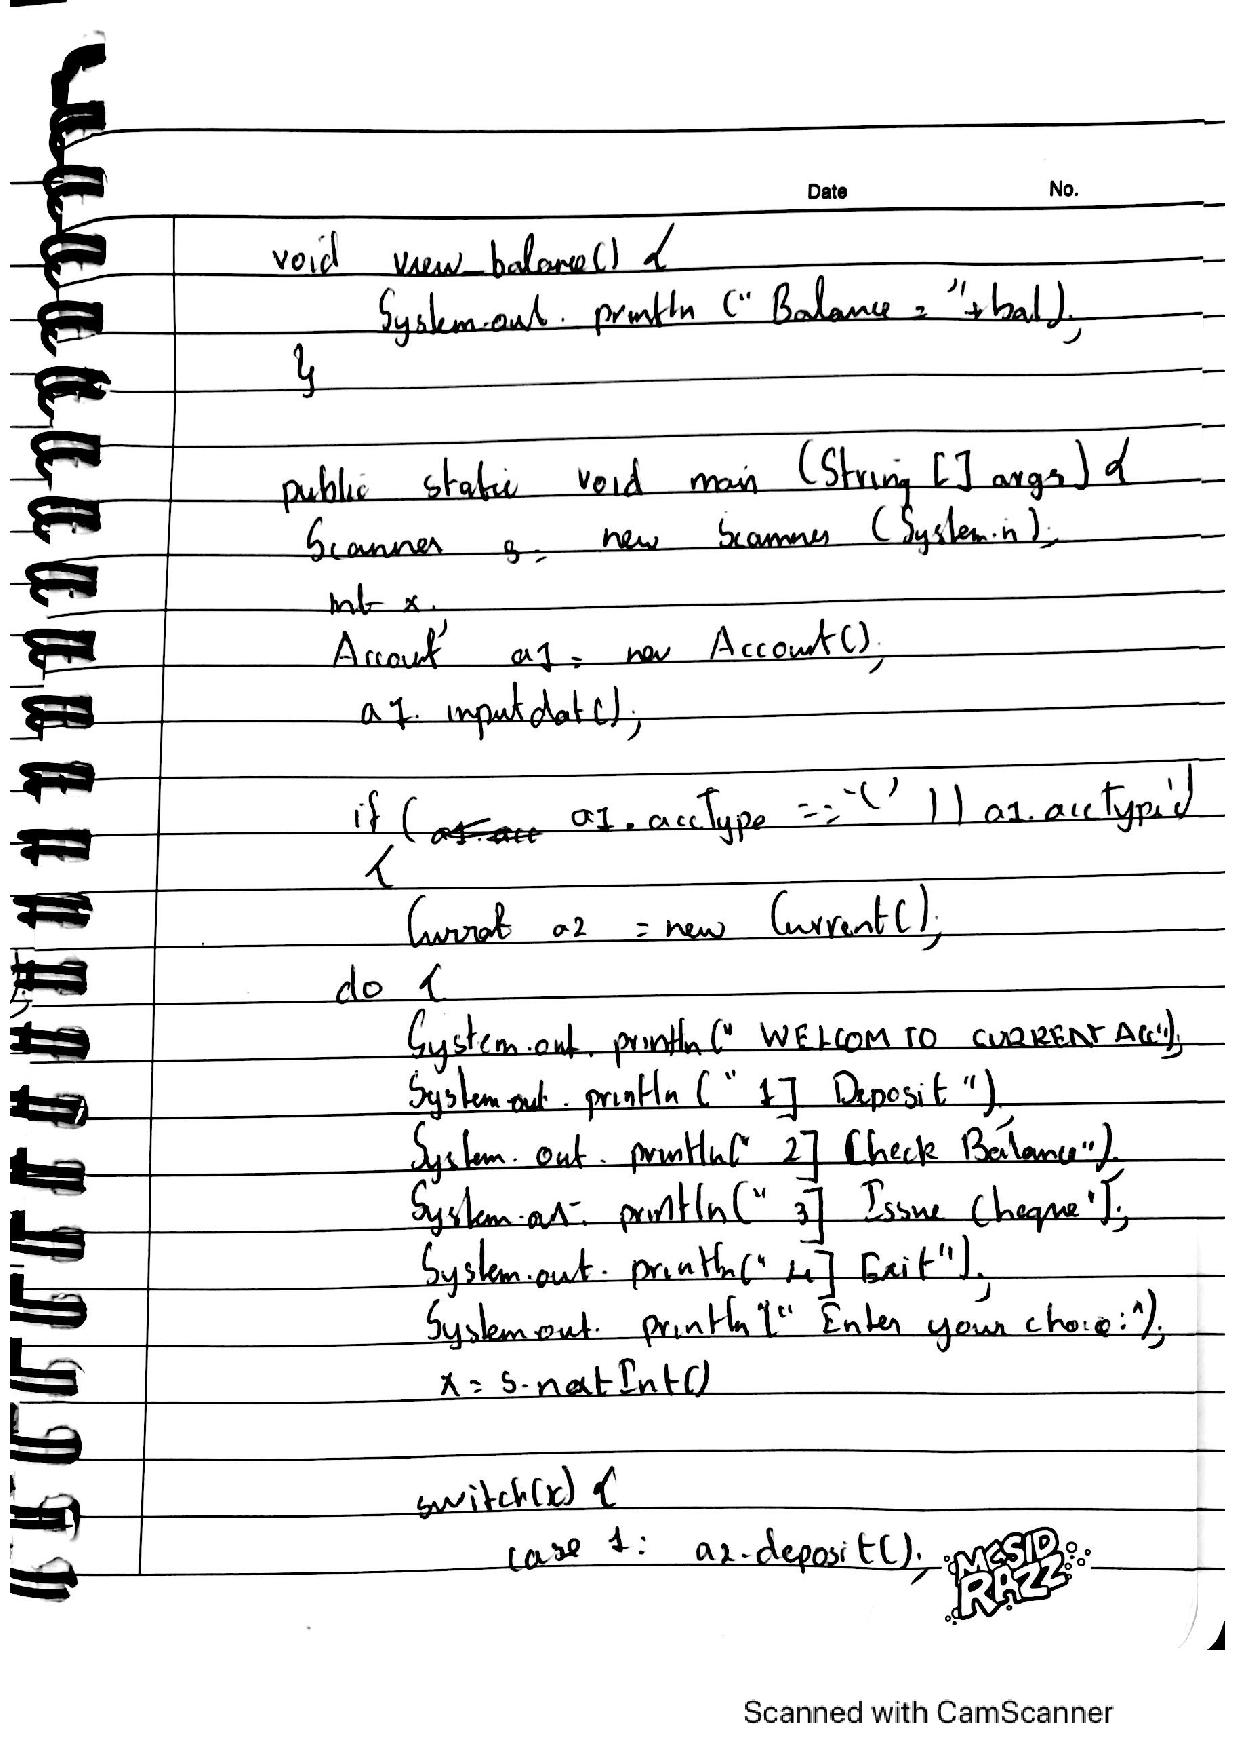 Date No.
void view_balance() {
System.out. println (" Balance = "+bal);
}
public static void main (String [] args) {
Scanner s= new Scanner (System.in);
int x;
Account a1 = new Account();
a1. inputdat();
if ( a1.acc a1.accType == '(' || a1.accType'
{
Currat a2 = new Current();
do {
System.out. println(" WELCOM TO CURRENT ACC");
System.out. println (" 1] Deposit ");
System. out. println(" 2] Check Balance");
System.out. println(" 3] Issue Cheque");
System.out. println(" 4] Exit");
System.out. println(" Enter your choice:");
x = s.nextInt()
switch(x) {
case 1: a2.deposit();
MCSID
RAZZ
Scanned with CamScanner